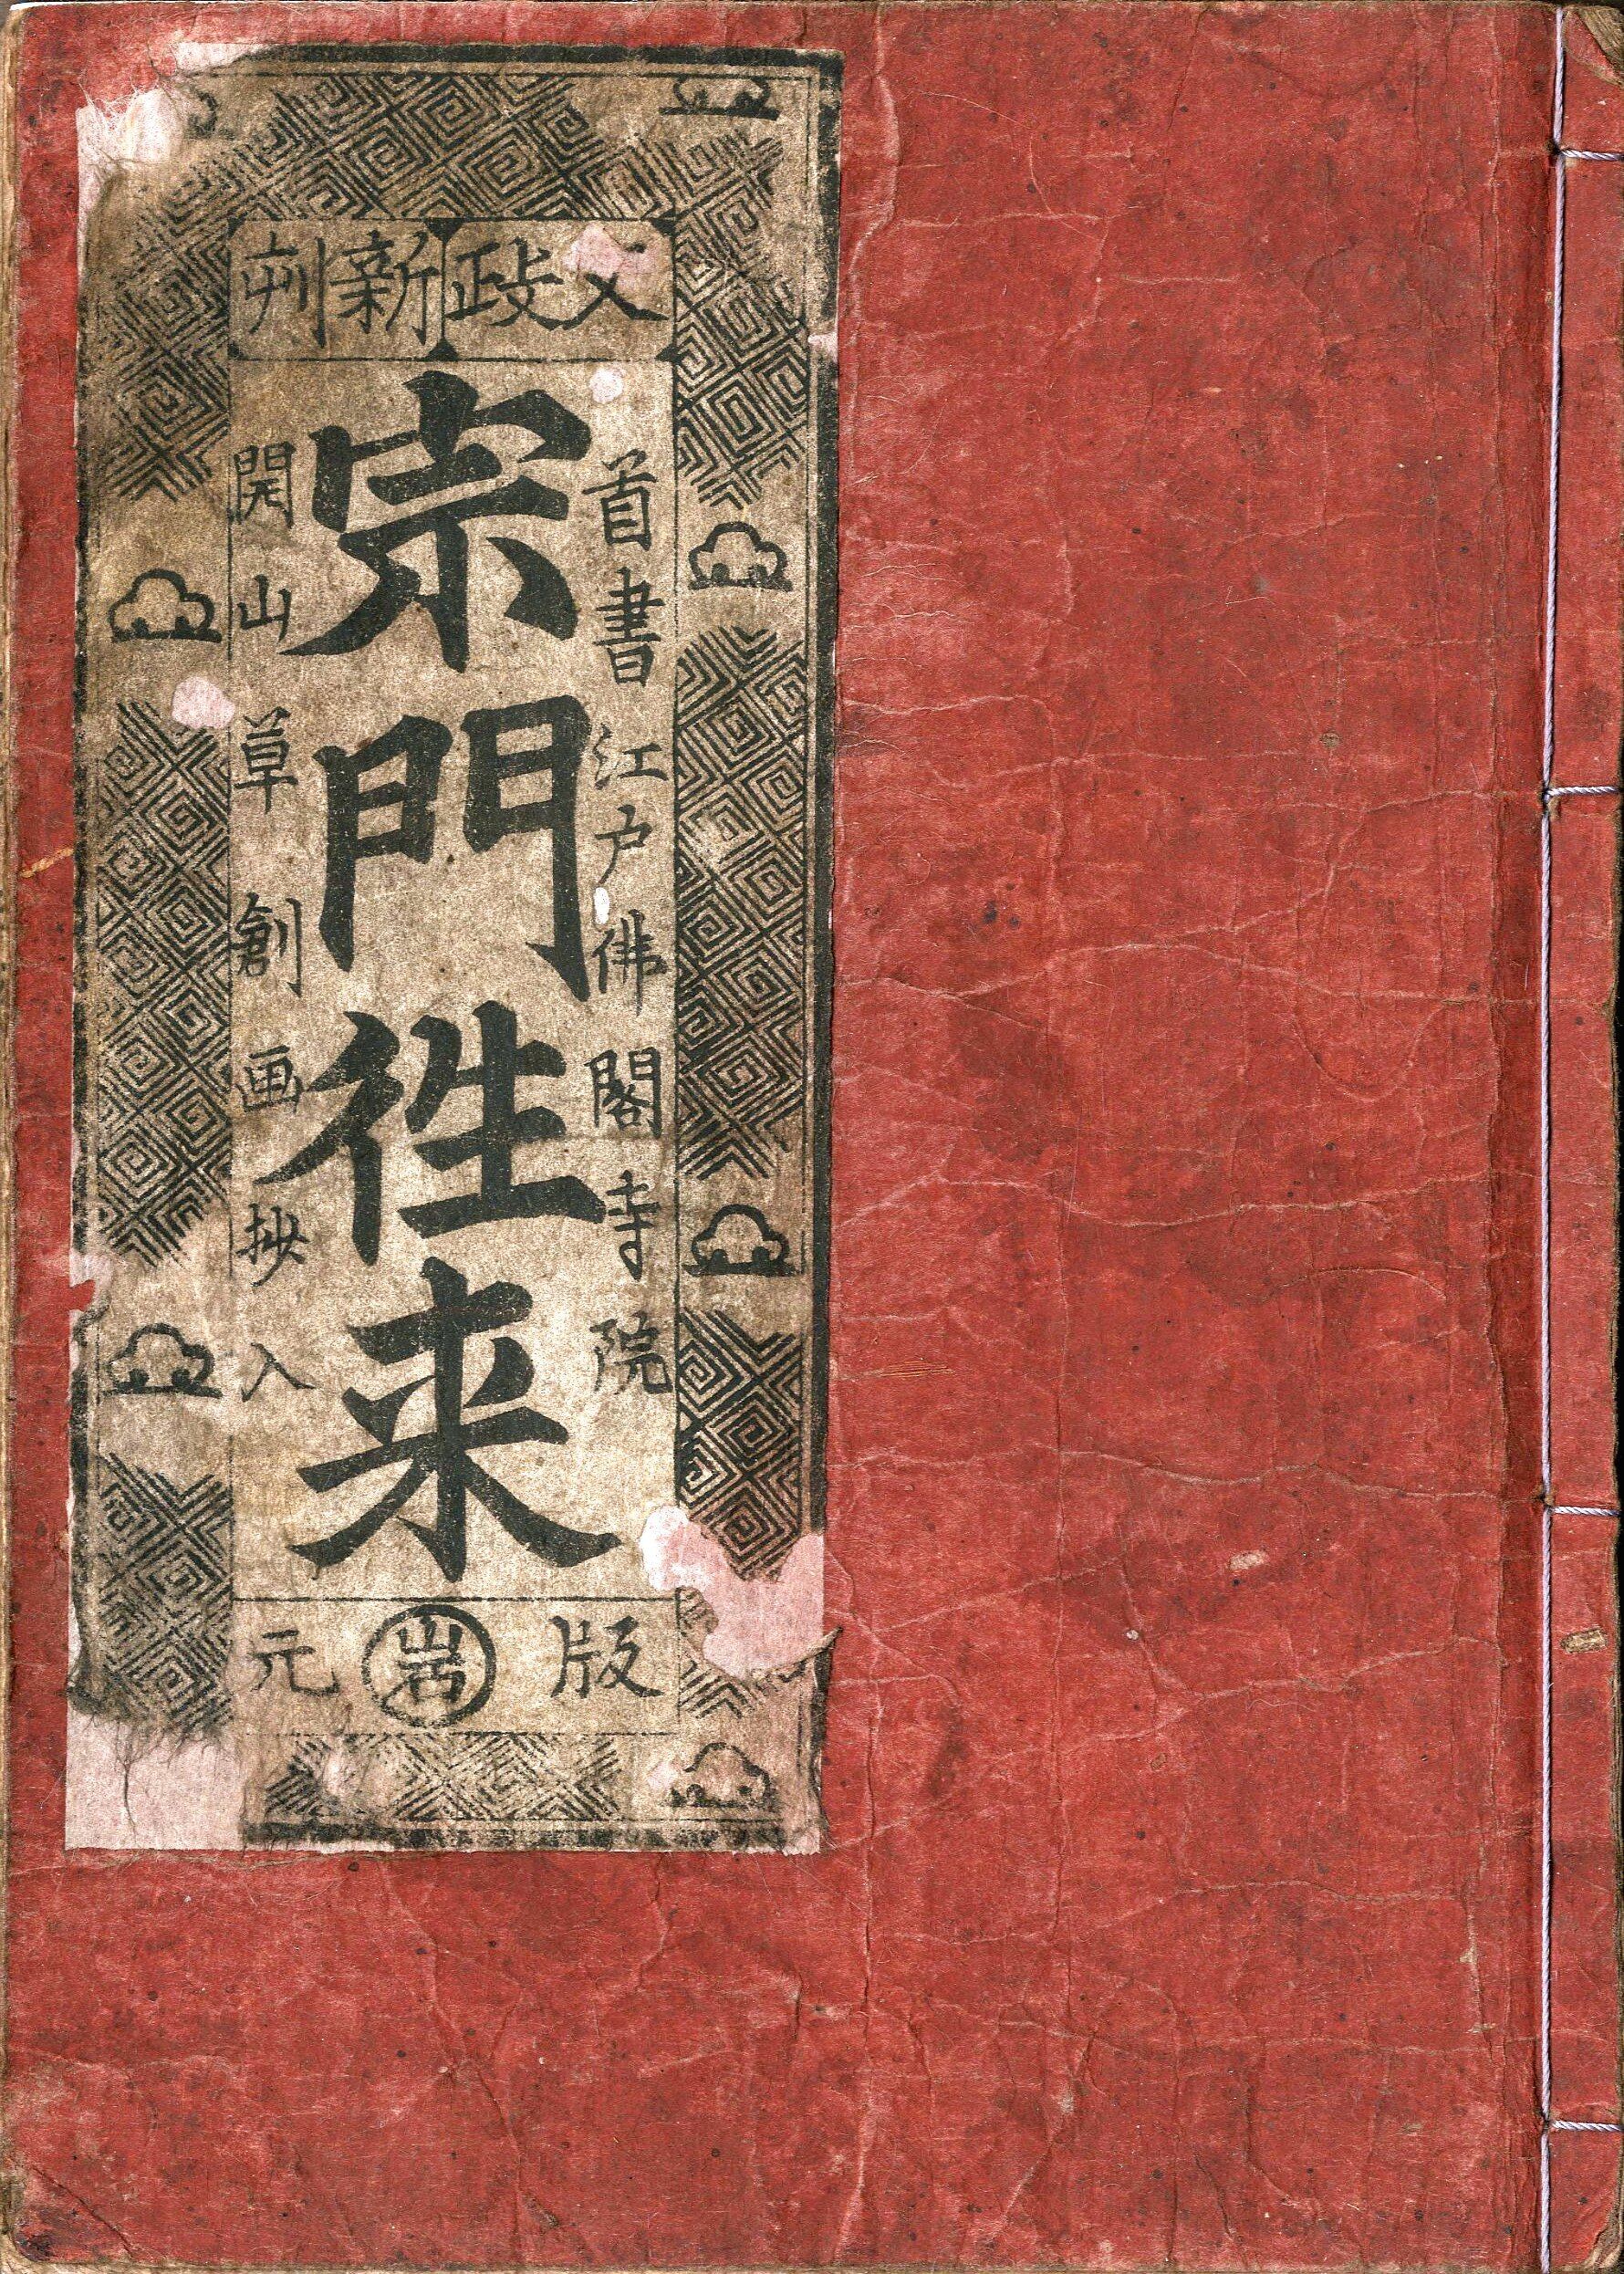 文政新刋
首書江戸佛閣寺院
宗門徃来
開山草創画抄入
版元